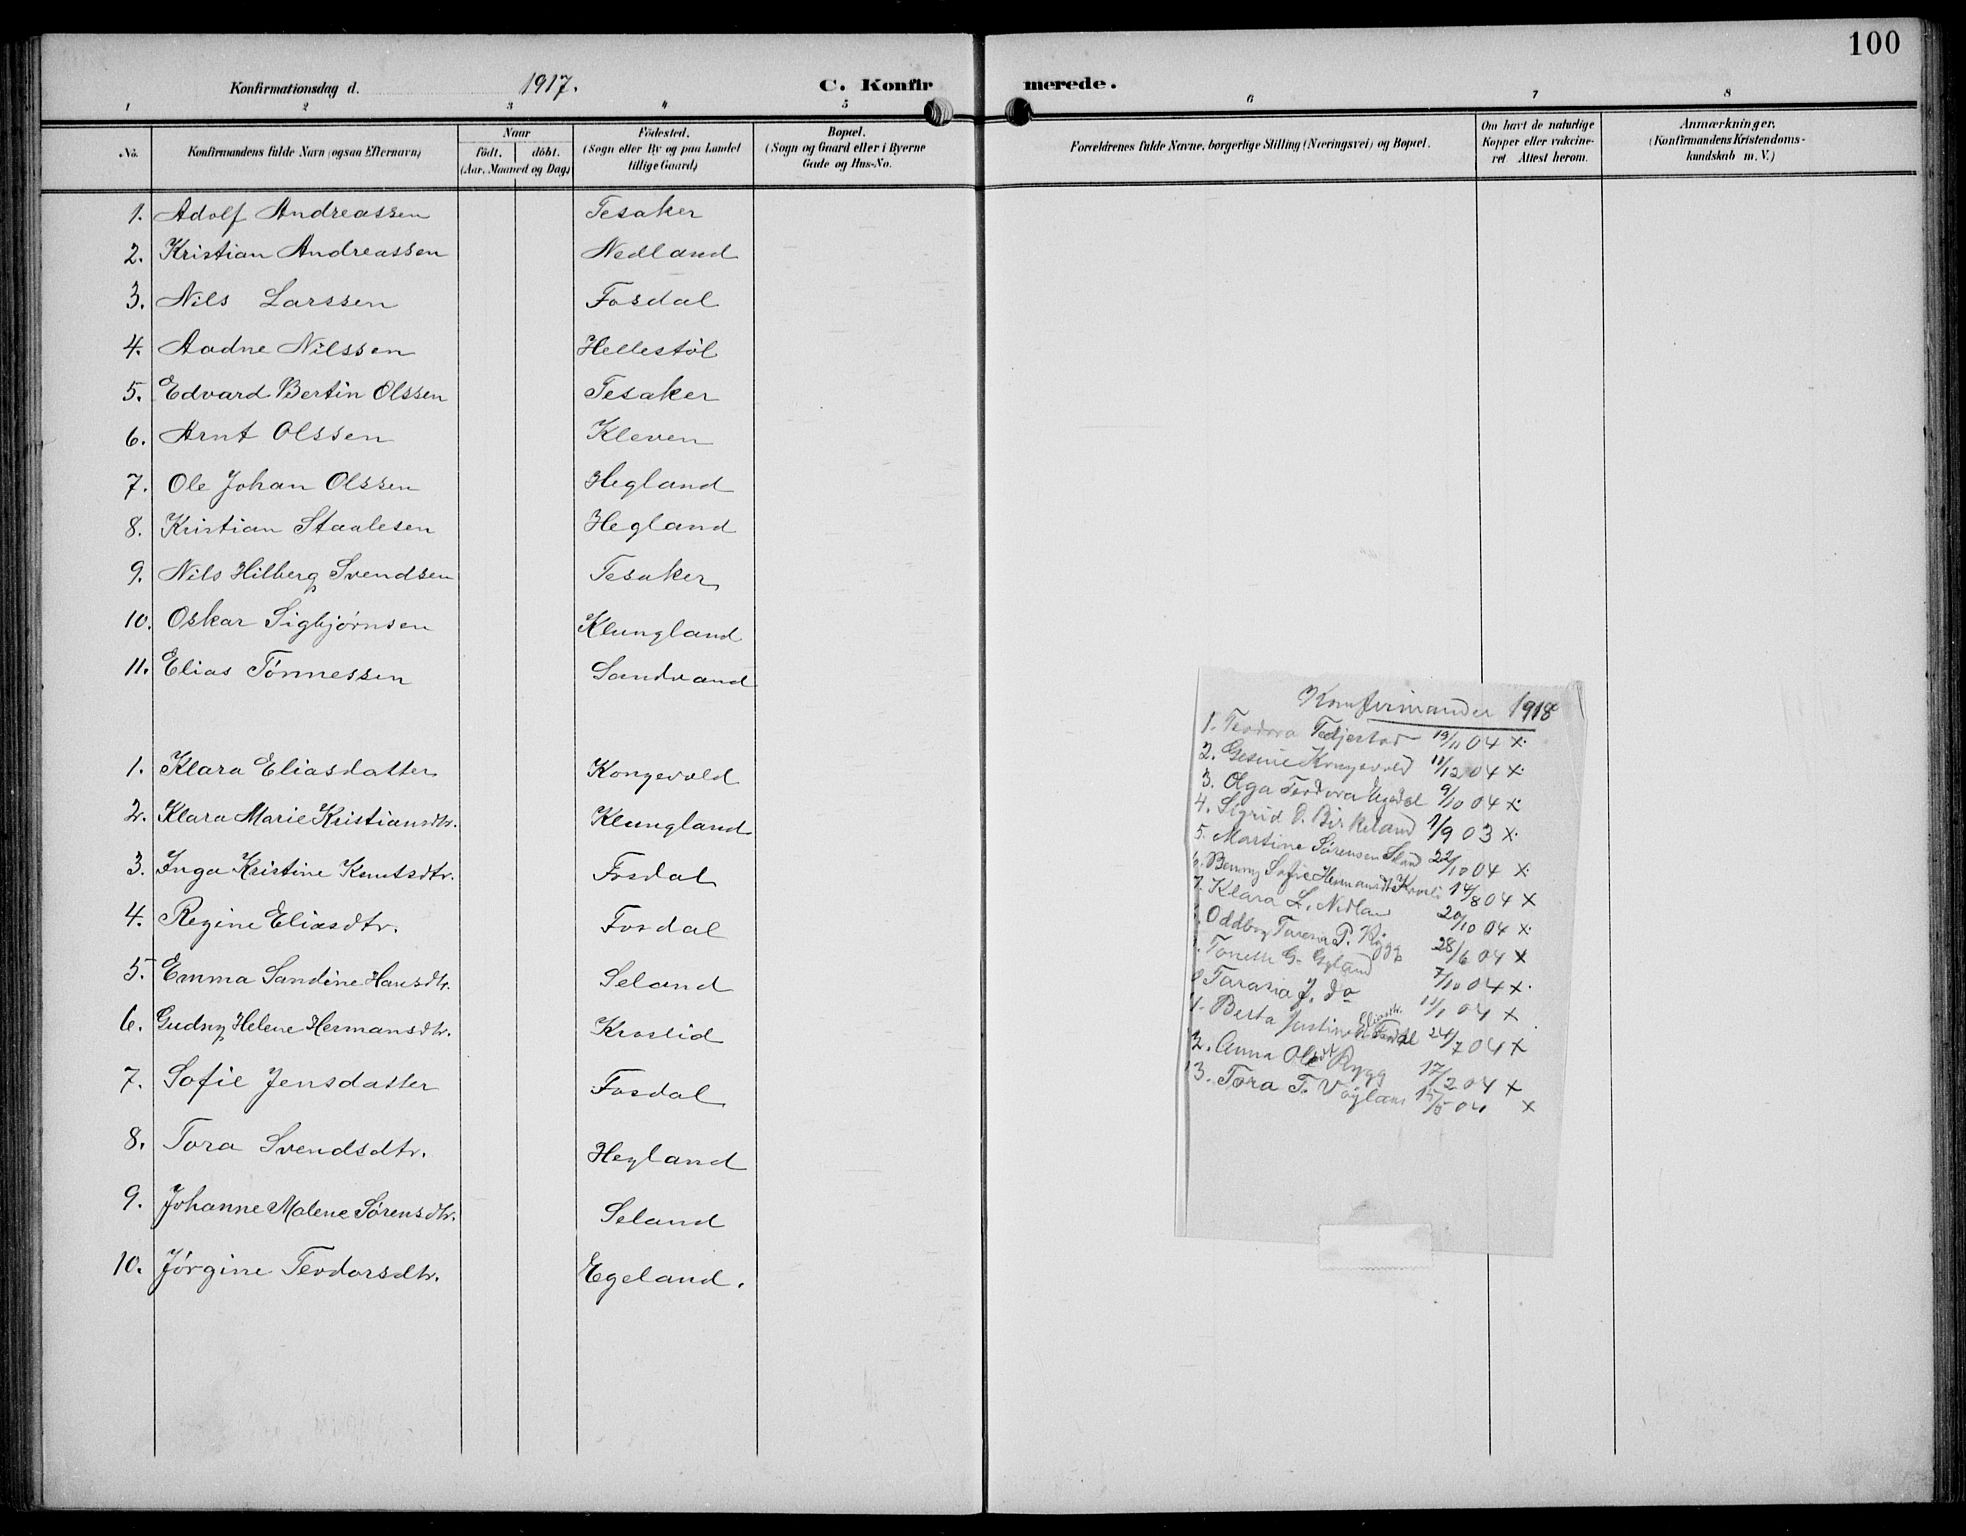 100
Konfirmationsdag d. 1917. C. Konfirmerede.
1 2 3 4 5 6 7 8
No.
Konfirmandens fulde Navn (ogsaa Efternavn)
Naar
födt. döbt.
(Aar, Maaned og Dag)
Födested.
(Sogn eller By og paa Landet
tillige Gaard)
Bopæl.
(Sogn og Gaard eller i Byerne
Gade og Hus-No.
Forældrenes fulde Navne, borgerlige Stilling (Næringsvei) og Bopæl.
Om havt de naturlige
Kopper eller vakcine-
ret. Attest herom.
Anmærkninger.
(Konfirmandens Kristendoms-
kundskab m. V.)
1. Adolf Andreassen Tesaker
2. Kristian Andreassen Nedland
3. Nils Larssen Fosdal
4. Aadne Nilssen Hellestöl
5. Edvard Bertin Olssen Tesaker
6. Arnt Olssen Kleven
7. Ole Johan Olssen Hegland
8. Kristian Staalesen Hegland
9. Nils Hilberg Svendsen Tesaker
10. Oskar Sigbjørnsen Klungland
11. Elias Tönnessen Sandvand
1. Klara Eliasdatter Kongevold
2. Klara Marie Kristiansdtr. Klungland
3. Inga Kristine Knutsdtr. Fosdal
4. Regine Eliasdtr. Fosdal
5. Emma Sandine Hansdtr. Seland
6. Gudny Helene Hermansdtr. Kroslid
7. Sofie Jensdatter Fosdal
8. Tora Svendsdtr. Hegland
9. Johanne Malene Sørensdtr. Seland
10. Jørgine Teodorsdtr. Egeland.
Konfirmander 1918
1. Teodora 13/11 04 x
2. Gesine Kongevold 11/12 04 x
3. Olga Teodora Egedal 9/10 04 x
4. Sigrid O. Birkeland 1/9 03 x
5. Martine Sørensen 22/10 04 x
6. Benny Sofie Hermansdt Krosli 14/8 04 x
7. Klara L. Nedland 20/10 04 x
Oddbeg P. Rygg 28/6 04 x
Tonette G. Egland 7/10 04 x
Tarasia J. do 11/1 04 x
Berta Justine Eliasdtr. Fosdal 24/7 04 x
2. Anna Olsdt Rygg 17/2 04 x
13. Tora T. 15/5 04 x